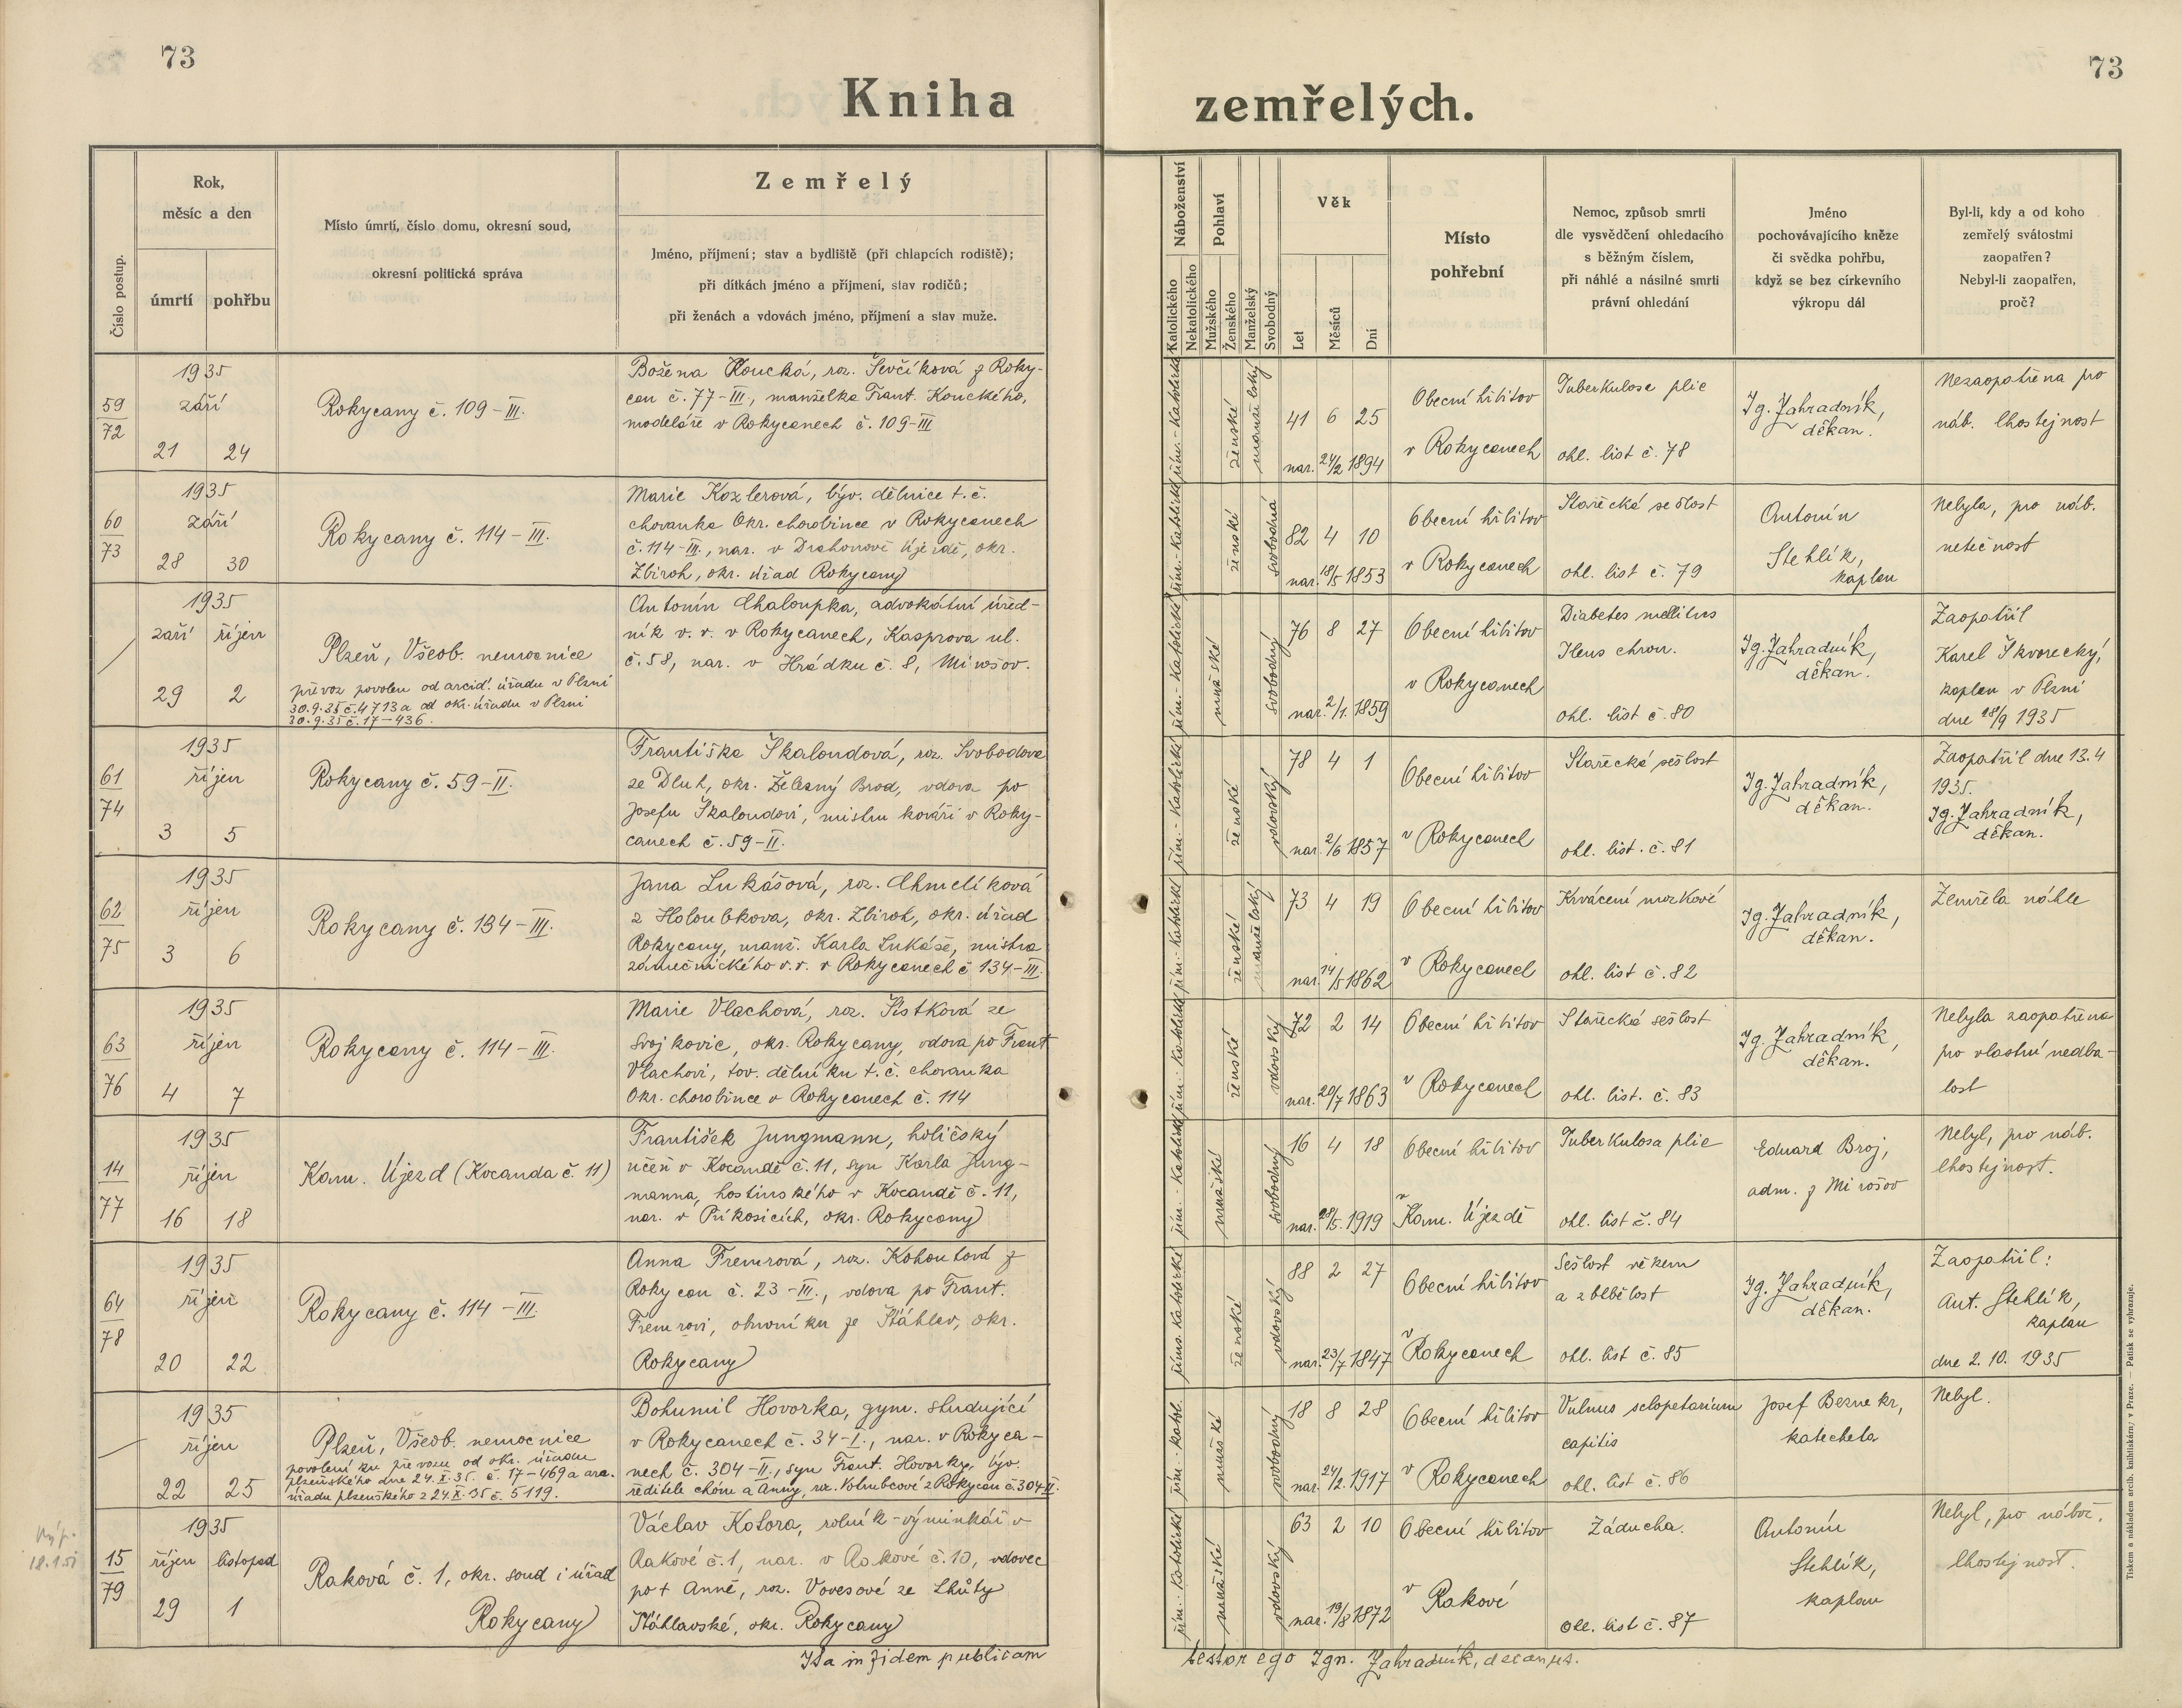 73
73
Kniha zemřelých.
Číslo postup.
Rok,
měsíc a den
úmrtí
pohřbu
Místo úmrtí, číslo domu, okresní soud,
okresní politická správa
Zemřelý
Jméno, příjmení; stav a bydliště (při chlapcích rodiště);
při dítkách jméno a příjmení, stav rodičů;
při ženách a vdovách jméno, příjmení a stav muže.
Náboženství
Katolického
Nekatolického
Pohlaví
Mužského
Ženského
Manželský
Svobodný
Věk
Let
Měsíců
Dní
Místo
pohřební
Nemoc, způsob smrti
dle vysvědčení ohledacího
s běžným číslem,
při náhlé a násilné smrti
právní ohledání
Jméno
pochovávajícího kněze
či svědka pohřbu,
když se bez církevního
výkropu dál
Byl-li, kdy a od koho
zemřelý svátostmi
zaopatřen?
Nebyl-li zaopatřen,
proč?
59
72
1935
září
21 24
Rokycany č. 109-III.
Božena Koucká, roz. Ševčíková z Roky-
can č. 77-III, manželka Frant. Kouckého,
modeláře v Rokycanech č. 109-III
řím.-katolické
ženské
manželský
41 6 25
nar. 24/2 1894
Obecní hřbitov
v Rokycanech
Tuberkulosa plic
ohl. list č. 78
Ig. Zahradník,
děkan.
Nezaopatřena pro
náb. lhostejnost
60
73
1935
září
28 30
Rokycany č. 114-III.
Marie Kozlerová, býv. dělnice t.č.
chovanka Okr. chorobince v Rokycanech
č. 114-III., nar. v Drahoňově Újezdě, okr.
Zbiroh, okr. úřad Rokycany
řím.-katolické
ženské
svobodná
82 4 10
nar. 18/5 1853
Obecní hřbitov
v Rokycanech
Stařecká sešlost
ohl. list č. 79
Antonín
Stehlík,
kaplan
Nebyla, pro náb.
netečnost
1935
září říjen
29 2
Plzeň, Všeob. nemocnice
převoz povolen od arcid. úřadu v Plzni
30.9.35 č. 4713 a od okr. úřadu v Plzni
30.9.35 č. 17-436.
Antonín Chaloupka, advokátní úřed-
ník v. v. v Rokycanech, Kasprova ul.
č. 58, nar. v Hrádku č. 8, Mirošov.
řím.-katolické
mužské
svobodný
76 8 27
nar. 2/1. 1859
Obecní hřbitov
v Rokycanech
Diabetes mellitus
Ileus chron.
ohl. list č. 80
Ig. Zahradník,
děkan.
Zaopatřil
Karel Škvorecký,
kaplan v Plzni
dne 28/9 1935
61
74
1935
říjen
3 5
Rokycany č. 59-II.
Františka Škaloudová, roz. Svobodova
ze Dluh, okr. Železný Brod, vdova po
Josefu Škaloudovi, mistru kováři v Roky-
canech č. 59-II.
řím.-katolické
ženské
vdovský
78 4 1
nar. 2/6 1857
Obecní hřbitov
v Rokycanech
Stařecká sešlost
ohl. list. č. 81
Ig. Zahradník,
děkan.
Zaopatřil dne 13.4
1935.
Ig. Zahradník,
děkan.
62
75
1935
říjen
3 6
Rokycany č. 134-III.
Jana Lukášová, roz. Chmelíková
z Holoubkova, okr. Zbiroh, okr. úřad
Rokycany, manž. Karla Lukáše, mistra
zámečnického v.v. v Rokycanech č 134-III.
řím.-katolické
ženské
manželský
73 4 19
nar. 14/5 1862
Obecní hřbitov
v Rokycanech
Krvácení mozkové
ohl. list č. 82
Ig. Zahradník,
děkan.
Zemřela náhle
63
76
1935
říjen
4 7
Rokycany č. 114-III.
Marie Vlachová, roz. Šistková ze
Svojkovic, okr. Rokycany, vdova po Frant
Vlachovi, tov. dělníku t.č. chovanka
Okr. chorobince v Rokycanech č. 114
řím.-katolické
ženské
vdovský
72 2 14
nar. 20/7 1863
Obecní hřbitov
v Rokycanech
Stařecká sešlost
ohl. list. č. 83
Ig. Zahradník,
děkan.
Nebyla zaopatřena
pro vlastní nedba-
lost
14
77
1935
říjen
16 18
Kam. Újezd (Kocanda č. 11)
František Jungmann, holičský
učeň v Kocandě č. 11, syn Karla Jung-
manna, hostinského v Kocandě č. 11,
nar. v Příkosicích, okr. Rokycany
řím.-katolické
mužské
svobodný
16 4 18
nar. 28/5. 1919
Obecní hřbitov
v Kam. Újezdě
Tuberkulosa plic
ohl. list č. 84
Eduard Broj,
adm. z Mirošov
Nebyl, pro náb.
lhostejnost.
64
78
1935
říjen
20 22
Rokycany č. 114-III.
Anna Fremrová, roz. Kohoutová z
Rokycan č. 23-III., vdova po Frant.
Fremrovi, obuvníku ze Šťáhlav, okr.
Rokycany
říms. katolické
ženské
vdovský
88 2 27
nar. 23/7 1847
Obecní hřbitov
v Rokycanech
Sešlost věkem
a zblbělost
ohl. list č. 85
Ig. Zahradník,
děkan.
Zaopatřil:
Ant. Stehlík,
kaplan
dne 2. 10. 1935
1935
říjen
22 25
Plzeň, Všeob. nemocnice
povolení ku převozu od okr. úřadu
plzeňského dne 24.X.35. č. 17-469 a arc.
úřadu plzeňského z 24.X.35 č. 5119.
Bohumil Hovorka, gym. studující
v Rokycanech č. 34-I., nar. v Rokyca-
nech č. 304-II., syn Frant. Hovorky, býv.
ředitele chóru a Anny, roz. Votrubcové z Rokycan č. 304 II.
řím.-katol.
mužské
svobodný
18 8 28
nar. 24/2. 1917
Obecní hřbitov
v Rokycanech
Vulnus sclopetarium
capitis
ohl. list č. 86
Josef Beznekr,
katecheta
Nebyl.
15
79
1935
říjen listopad
29 1
Raková č. 1, okr. soud i úřad
Rokycany
Václav Kotora, rolník-výminkář v
Rakové č. 1, nar. v Rakové č. 10, vdovec
po † Anně, roz. Vovesové ze Lhůty
Šťáhlavské, okr. Rokycany
řím.-katolické
mužské
vdovský
63 2 10
nar. 19/8 1872
Obecní hřbitov
v Rakové
Záducha.
ohl. list č. 87
Antonín
Stehlík,
kaplan
Nebyl, pro nábož.
lhostejnost.
Ita in fidem publicam testor ego Ign. Zahradník, decanus.
Tiskem a nákladem arcib. knihtiskárny v Praze. — Patisk se vyhrazuje.